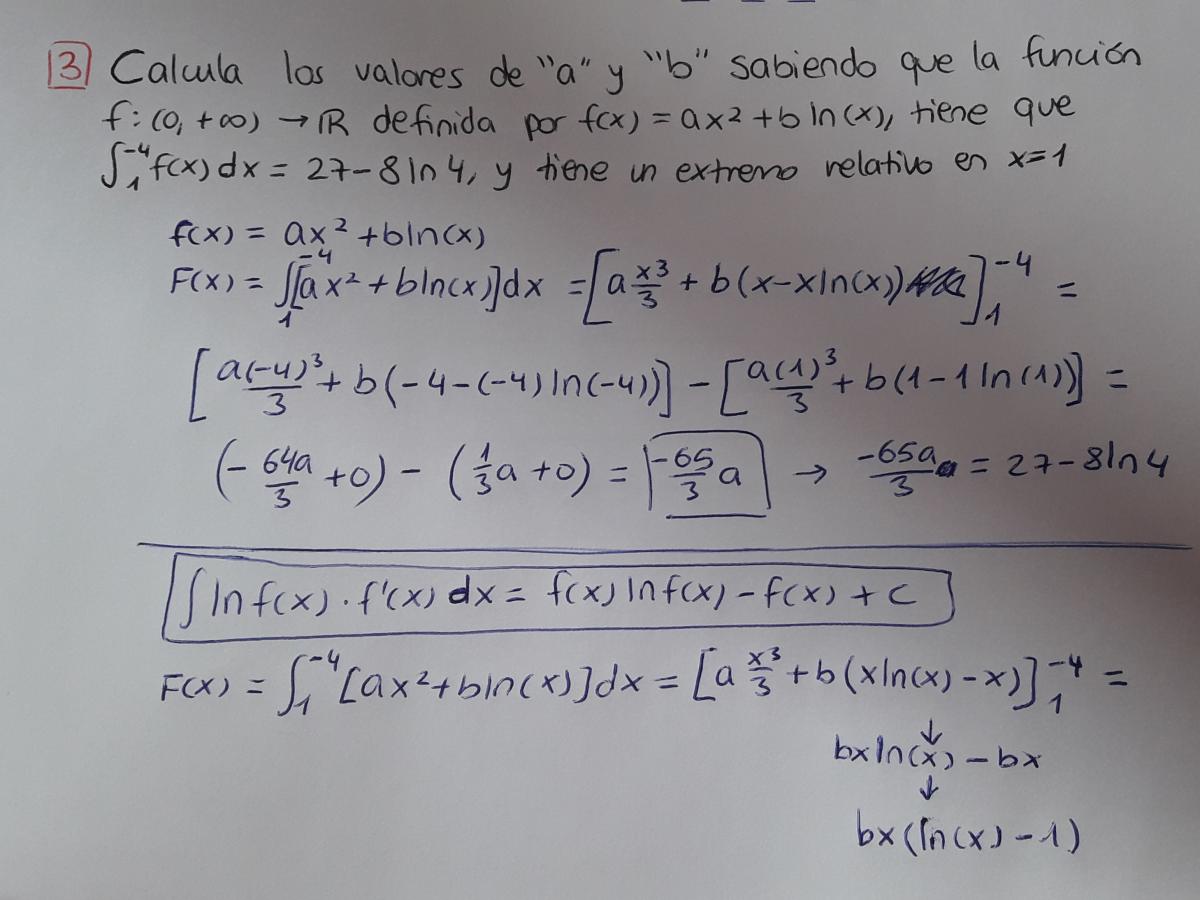 3 Calcula los valores de "a" y "b" sabiendo que la función
f: (0, +∞) → ℝ definida por f(x) = ax² + b ln(x), tiene que
∫₁⁻⁴ f(x) dx = 27 - 8 ln 4, y tiene un extremo relativo en x=1
f(x) = ax² + bln(x)
F(x) = ∫₁⁻⁴ [ax² + bln(x)] dx = [a x³/3 + b(x - xln(x))]₁⁻⁴ =
[a(-4)³/3 + b(-4-(-4) ln(-4))] - [a(1)³/3 + b(1-1 ln(1))] =
(- 64a/3 + 0) - (1/3 a + 0) = -65/3 a → -65a/3 = 27 - 8ln4
∫ ln f(x) · f'(x) dx = f(x) ln f(x) - f(x) + c
F(x) = ∫₁⁻⁴ [ax² + bln(x)] dx = [a x³/3 + b(xln(x) - x)]₁⁻⁴ =
↓
bxln(x) - bx
↓
bx(ln(x) - 1)